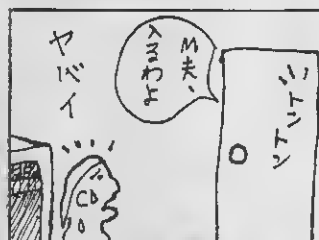 トントン
M夫、
入るわよ
ヤバイ